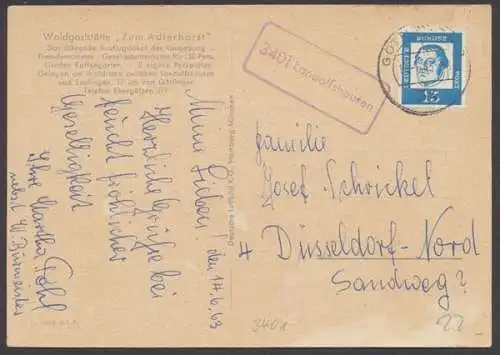 Waldgaststätte „Zum Adlerhorst"
Das führende Ausflugslokal der Umgebung
Fremdenzimmer - Gesellschaftszimmer für 150 Pers.
Großer Kaffeegarten - 2 eigene Parkplätze
Gelegen am Waldrand zwischen Landolfshausen
und Seulingen, 17 km von Göttingen
Telefon Ebergötzen 319
Meine Lieben! den 14.6.63
Herzliche Grüße bei
feucht fröhlicher
Geselligkeit
Ihre Martha Pohl
nebst W. Burmeister
3401 Landolfshausen
DEUTSCHE
BUNDESPOST
15
Familie
Josef Schrickel
4 Düsseldorf-Nord
Sandweg ?
22
3401